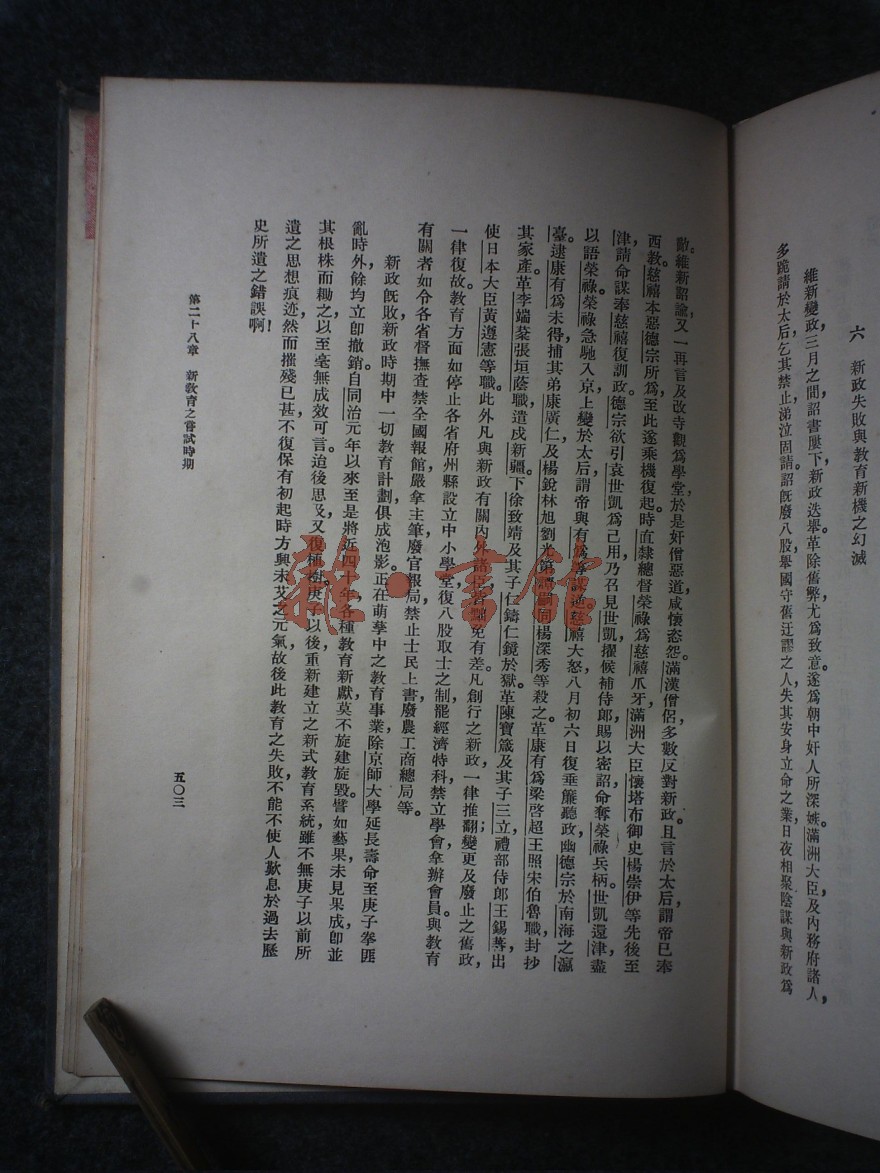 六　新政失敗與教育新機之幻滅
維新變政，三月之間，詔書屢下，新政迭舉。革除舊弊，尤爲致意。遂爲朝中奸人所深嫉。滿洲大臣及內務府諸人，
多跪請於太后，乞其禁止，涕泣固請。詔旣廢八股，舉國守舊迂謬之人，失其安身立命之業，日夜相聚陰謀，與新政爲
敵。維新詔諭，又一再言及改寺觀爲學堂，於是奸僧惡道，咸懷恣怨。滿漢僧侶，多數反對新政。且言於太后，謂帝已奉
西教。慈禧本惡德宗所爲，至此遂乘機復起。時直隸總督榮祿爲慈禧爪牙，滿洲大臣懷塔布御史楊崇伊等先後至
津請命，謀奉慈禧復訓政。德宗欲引袁世凱爲己用，乃召見世凱，擢候補侍郎，賜以密詔，命奪榮祿兵柄。世凱還津，盡
以語榮祿，榮祿急馳入京，上變於太后，謂帝與有爲等謀逆。慈禧大怒，八月初六日復垂簾聽政，幽德宗於南海之瀛
臺。逮康有爲，未得，捕其弟康廣仁及楊銳林旭劉光第譚嗣同楊深秀等殺之。革康有爲梁啓超王照宋伯魯職，封抄
其家產。革李端棻張垣蔭職，遣戍新疆。下徐致靖及其子仁鑄仁鏡於獄。革陳寶箴及其子三立禮部侍郎王錫蕃出
使日本大臣黃遵憲等職。此外凡與新政有關內外諸臣，皆黜免有差。凡創行之新政，一律推翻；變更及廢止之舊政，
一律復故。教育方面，如停止各省府州縣設立中小學堂，復八股取士之制，罷經濟特科，禁立學會，拿辦會員。與教育
有關者，如令各省督撫查禁全國報館，嚴拿主筆，廢官報局，禁止士民上書，廢農工商總局等。
新政旣敗，新政時期中一切教育計劃，俱成泡影。正在萌孳中之教育事業，除京師大學延長壽命至庚子拳匪
亂時外，餘均立卽撤銷。自同治元年以來，至是將近四十年，各種教育新獻，莫不旋建旋毀。譬如藝果，未見果成，卽並
其根株而鋤之，以至毫無成效可言。迨後思及，又復植樹。庚子以後，重新建立之新式教育系統，雖不無庚子以前所
遺之思想痕迹，然而摧殘已甚，不復保有初起時方興未艾之元氣，故後此教育之失敗，不能不使人歎息於過去歷
史所遺之錯誤啊！
第二十八章　新教育之嘗試時期
五〇三
雜·書館